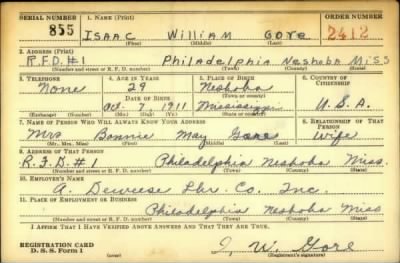 SERIAL NUMBER 1. NAME (Print) ORDER NUMBER
855 ISAAC WILLIAM GORE 2412
(First) (Middle) (Last)
2. ADDRESS (Print)
R.F.D. #1 Philadelphia Neshoba Miss
(Number and street or R. F. D. number) (Town) (County) (State)
3. TELEPHONE 4. AGE IN YEARS 5. PLACE OF BIRTH 6. COUNTRY OF CITIZENSHIP
None 29 Neshoba
DATE OF BIRTH (Town or county)
Oct. 7, 1911 Mississippi U.S.A.
(Exchange) (Number) (Mo.) (Day) (Yr.) (State or country)
7. NAME OF PERSON WHO WILL ALWAYS KNOW YOUR ADDRESS 8. RELATIONSHIP OF THAT PERSON
Mrs Bonnie May Gore Wife
(Mr., Mrs., Miss) (First) (Middle) (Last)
9. ADDRESS OF THAT PERSON
R.F.D. #1 Philadelphia Neshoba Miss.
(Number and street or R. F. D. number) (Town) (County) (State)
10. EMPLOYER'S NAME
A. Deweese Lbr. Co. Inc.
11. PLACE OF EMPLOYMENT OR BUSINESS
Philadelphia Neshoba Miss
(Number and street or R. F. D. number) (Town) (County) (State)
I AFFIRM THAT I HAVE VERIFIED ABOVE ANSWERS AND THAT THEY ARE TRUE.
REGISTRATION CARD
D. S. S. Form 1 I. W. Gore
(Registrant's signature)